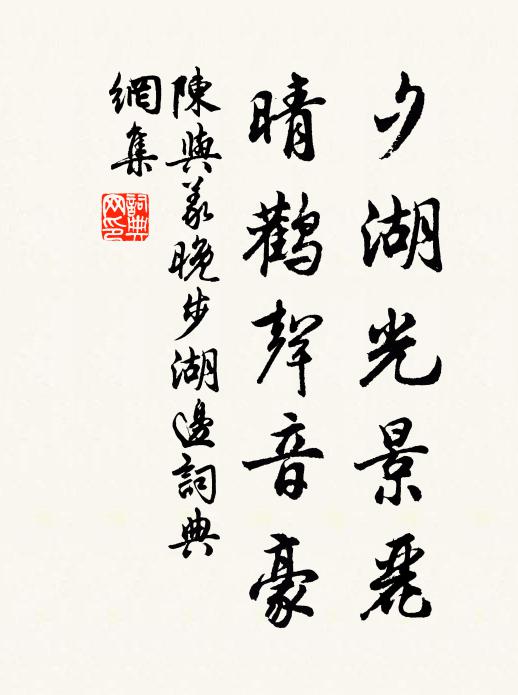 夕湖光景麗
晴鸛聲音豪
陳與義晚步湖邊詞典
網集
詞典
网印